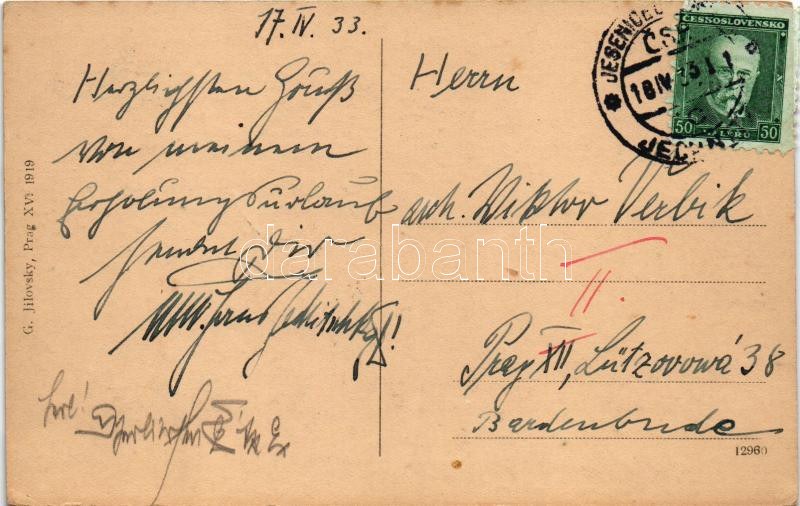 17. IV. 33.
Herzlichsten Gruß
von meinem
Erholungsurlaub
sendet Dir
Hans
Herrn
arch. Viktor Verbik
II.
Prag XII, Lützovová 38
Bardenbude
G. Jilovsky, Prag XVI 1919
12960
ČESKOSLOVENSKO
50 50
JESENICE
ČSR
18 IV 33
darabanth